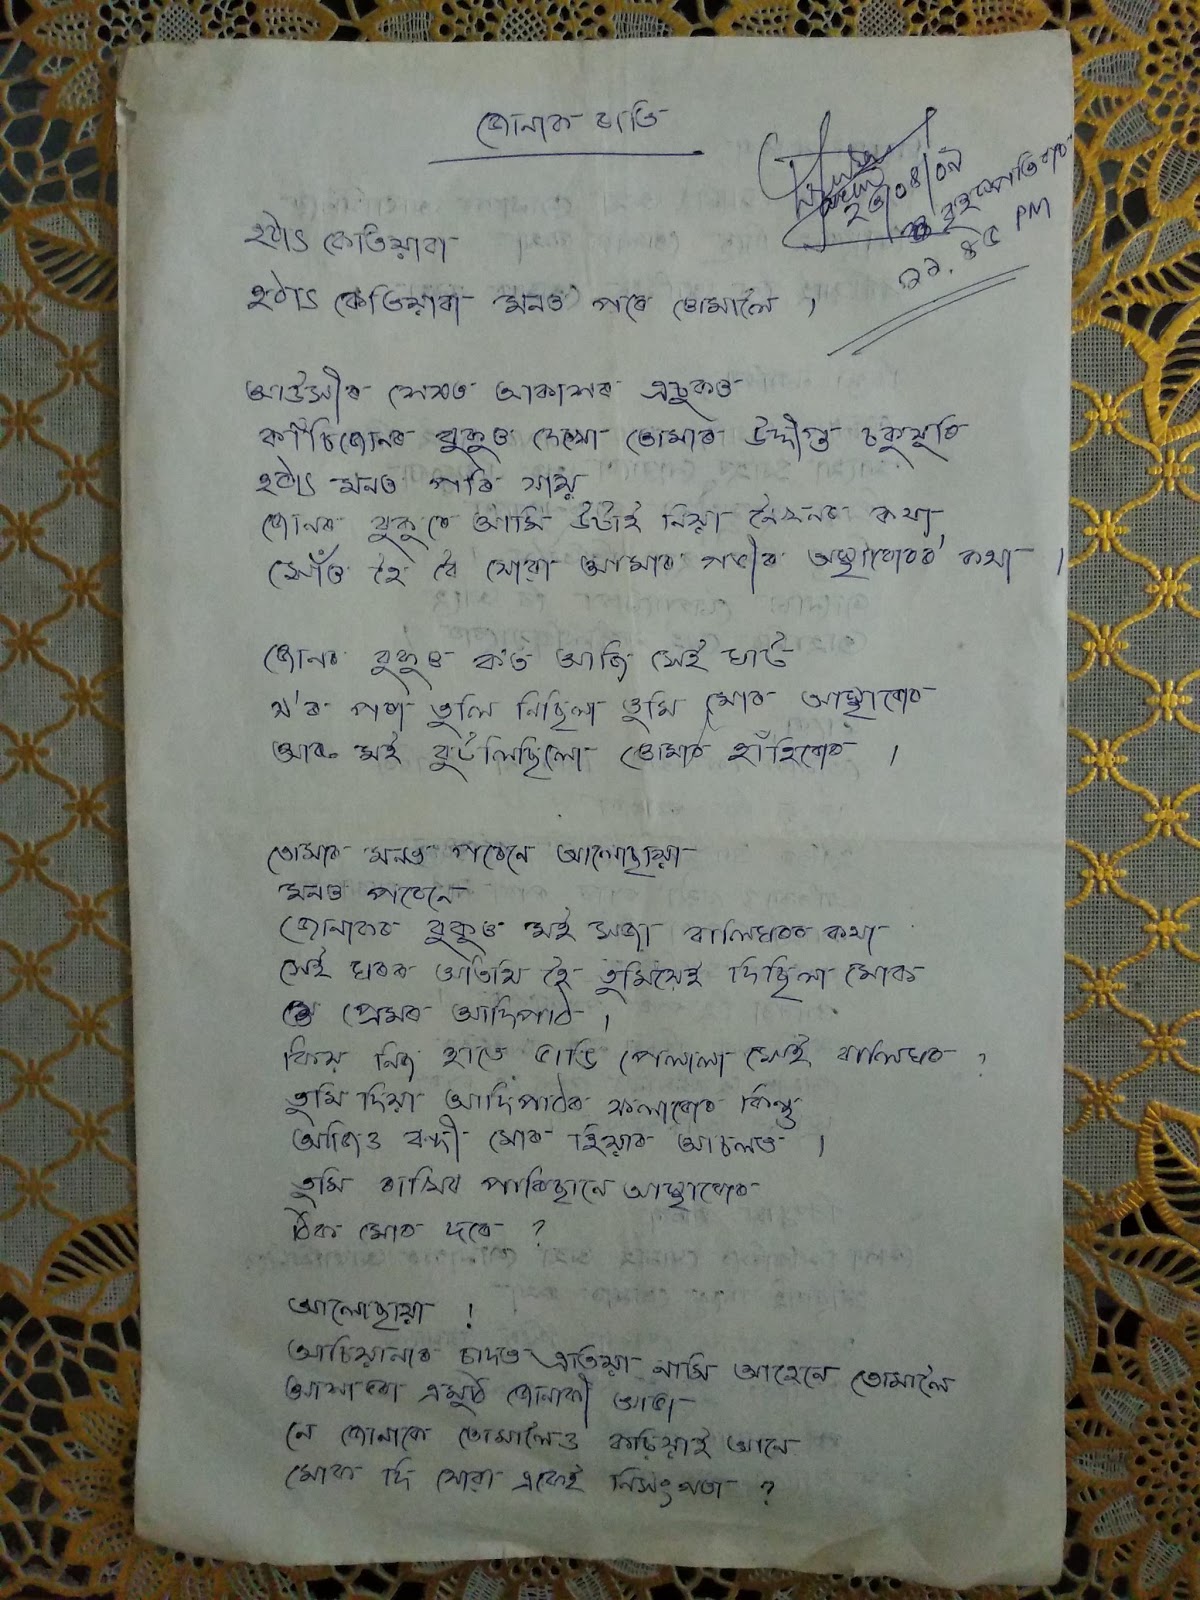 জোনাক ৰাতি
২৩/০৪/০৯
বৃহস্পতিবাৰ
১১.৪৫ PM
হঠাৎ কেতিয়াবা
হঠাৎ কেতিয়াবা মনত পৰে তোমালৈ ।
আউসীৰ শেষত আকাশৰ এচুকত
কাঁচিজোনৰ বুকুত দেখো তোমাৰ উদ্দীপ্ত চকুযুৰি
হঠাৎ মনত পৰি যায়
জোনৰ বুকুৰে আমি উটাই নিয়া নৈখনৰ কথা,
সোঁত হৈ বৈ যোৱা আমাৰ গভীৰ আস্থাবোৰৰ কথা ।
জোনৰ বুকুত ক'ত আজি সেই ঘাট
য'ৰ পৰা তুলি নিছিলা তুমি মোৰ আস্থাবোৰ
আৰু মই বুটলিছিলো তোমাৰ হাঁহিবোৰ ।
তোমাৰ মনত পৰেনে আলোছায়া
মনত পৰেনে
জোনাকৰ বুকুত মই সজা বালিঘৰৰ কথা
সেই ঘৰৰ অতিথি হৈ তুমিয়েই দিছিলা মোক
প্ৰেমৰ আদিপাঠ ।
কিয় নিজ হাতে ভাঙি পেলালা সেই বালিঘৰ ?
তুমি দিয়া আদিপাঠৰ ফলাবোৰ কিন্তু
আজিও বন্দী মোৰ হিয়াৰ আঁচলত ।
তুমি ৰাখিব পাৰিছানে আস্থাবোৰ
ঠিক মোৰ দৰে ?
আলোছায়া !
আচিয়ানাৰ চাদত এতিয়া নামি আহেনে তোমালৈ
আশাভৰা এমুঠি জোনাকী আভা
নে জোনাকে তোমালৈও কঢ়িয়াই আনে
মোক দি যোৱা একেই নিসংগতা ?